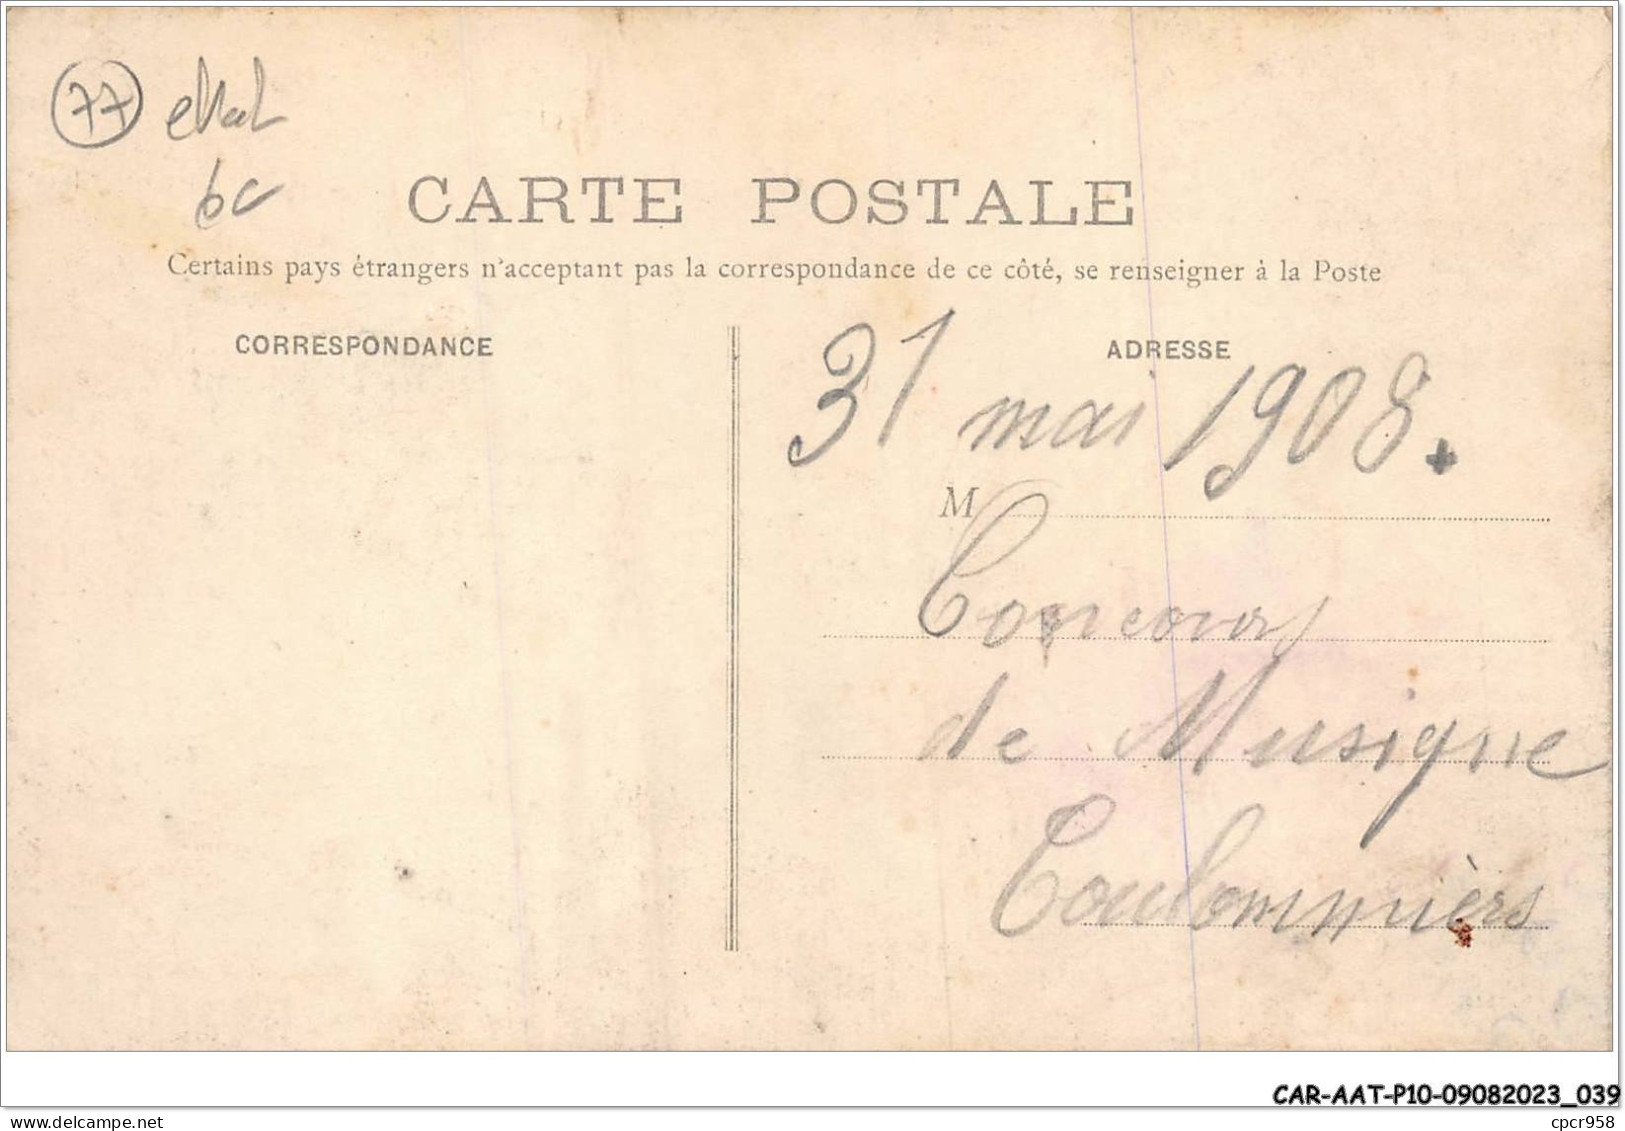 77 état
6c
CARTE POSTALE
Certains pays étrangers n'acceptant pas la correspondance de ce côté, se renseigner à la Poste
CORRESPONDANCE
ADRESSE
31 mai 1908.
M
Concours
de Musique
Coulommièrs
CAR-AAT-P10-09082023_039
cpcr958